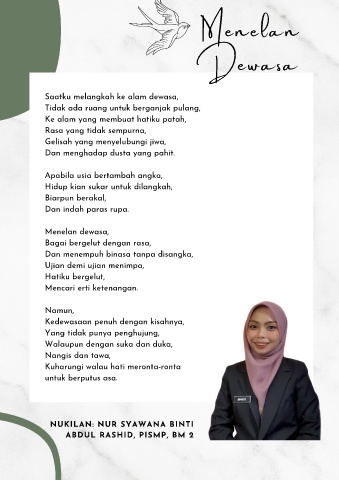 Menelan
Dewasa
Saatku melangkah ke alam dewasa,
Tidak ada ruang untuk berganjak pulang,
Ke alam yang membuat hatiku patah,
Rasa yang tidak sempurna,
Gelisah yang menyelubungi jiwa,
Dan menghadap dusta yang pahit.
Apabila usia bertambah angka,
Hidup kian sukar untuk dilangkah,
Biarpun berakal,
Dan indah paras rupa.
Menelan dewasa,
Bagai bergelut dengan rasa,
Dan menempuh binasa tanpa disangka,
Ujian demi ujian menimpa,
Hatiku bergelut,
Mencari erti ketenangan.
Namun,
Kedewasaan penuh dengan kisahnya,
Yang tidak punya penghujung,
Walaupun dengan suka dan duka,
Nangis dan tawa,
Kuharungi walau hati meronta-ronta
untuk berputus asa.
NUKILAN: NUR SYAWANA BINTI
ABDUL RASHID, PISMP, BM 2